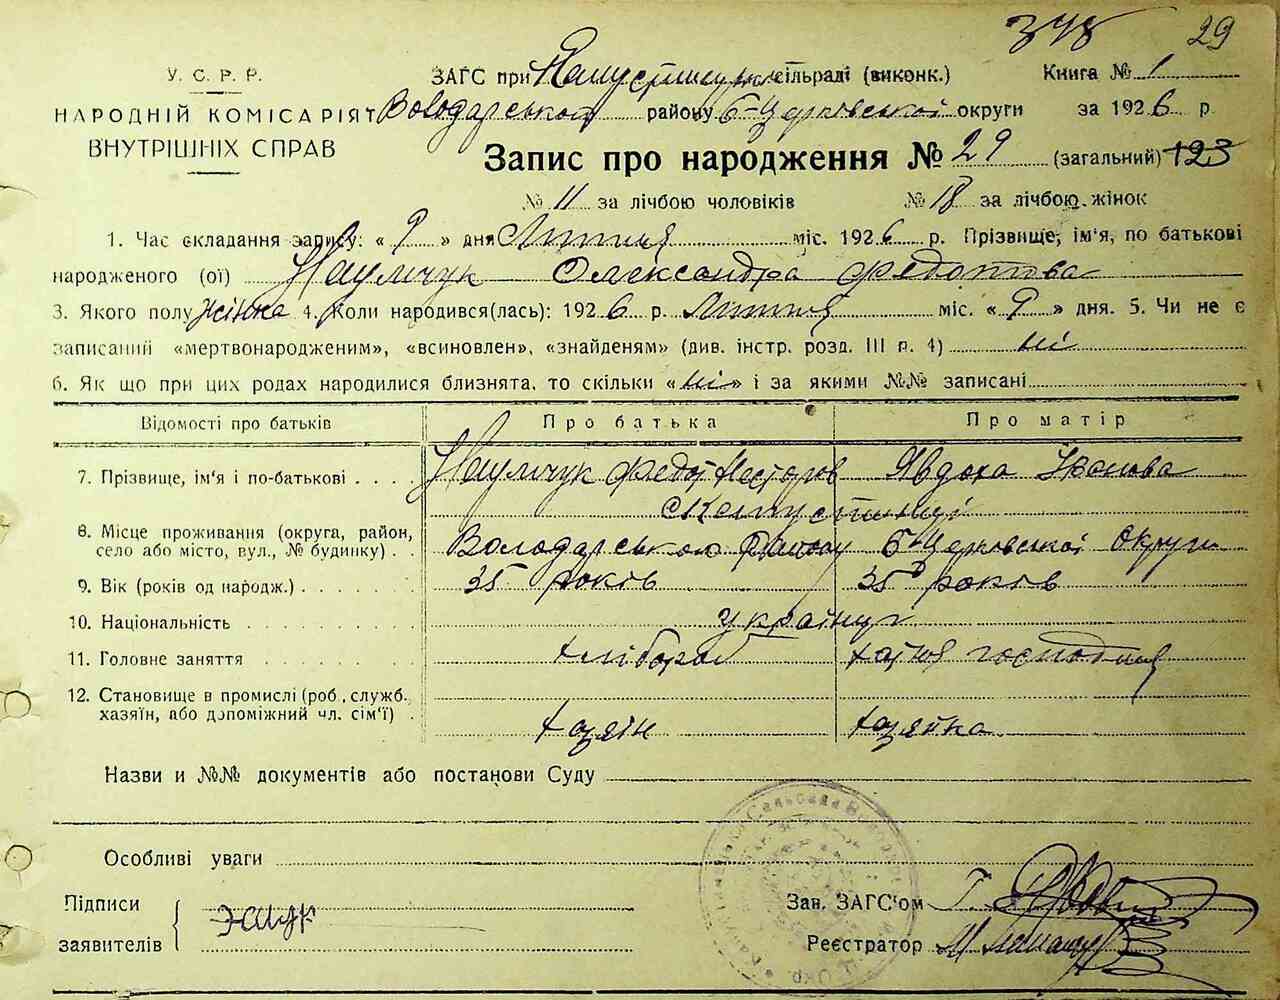 348 29
У. С. Р. Р.
НАРОДНІЙ КОМІСАРІЯТ
ВНУТРІШНІХ СПРАВ
ЗАГС при сільраді (виконк.) Книга № 1
Володарського району Б-Церковської округи за 1926 р.
Запис про народження № 29 (загальний) 123
№ 11 за лічбою чоловіків № 18 за лічбою жінок
1. Час складання запису: « 9 » дня Липня міс. 1926 р. Прізвище, ім'я, по батькові
народженого (ої) Наумчук Олександра Федотова
3. Якого полу жінка 4. Коли народився(лась): 1926 р. Липня міс. « 9 » дня. 5. Чи не є
записаний «мертвонародженим», «всиновлен», «знайденям» (див. інстр. розд. III п. 4) ні
6. Як що при цих родах народилися близнята, то скільки « ні » і за якими №№ записані
Відомості про батьків Про батька Про матір
7. Прізвище, ім'я і по-батькові Наумчук Федот Несторов Явдоха Іванова
8. Місце проживання (округа, район,
село або місто, вул., № будинку) Володарського району Б-Церковської Округи
9. Вік (років од народж.) 35 років 35 років
10. Національність українці
11. Головне заняття хлібороб хатня господиня
12. Становище в промислі (роб., служб.
хазяїн, або допоміжний чл. сім'ї) хазяїн хазяйка
Назви и №№ документів або постанови Суду
Особливі уваги
Підписи
заявителів
Зав. ЗАГС'ом
Реєстратор